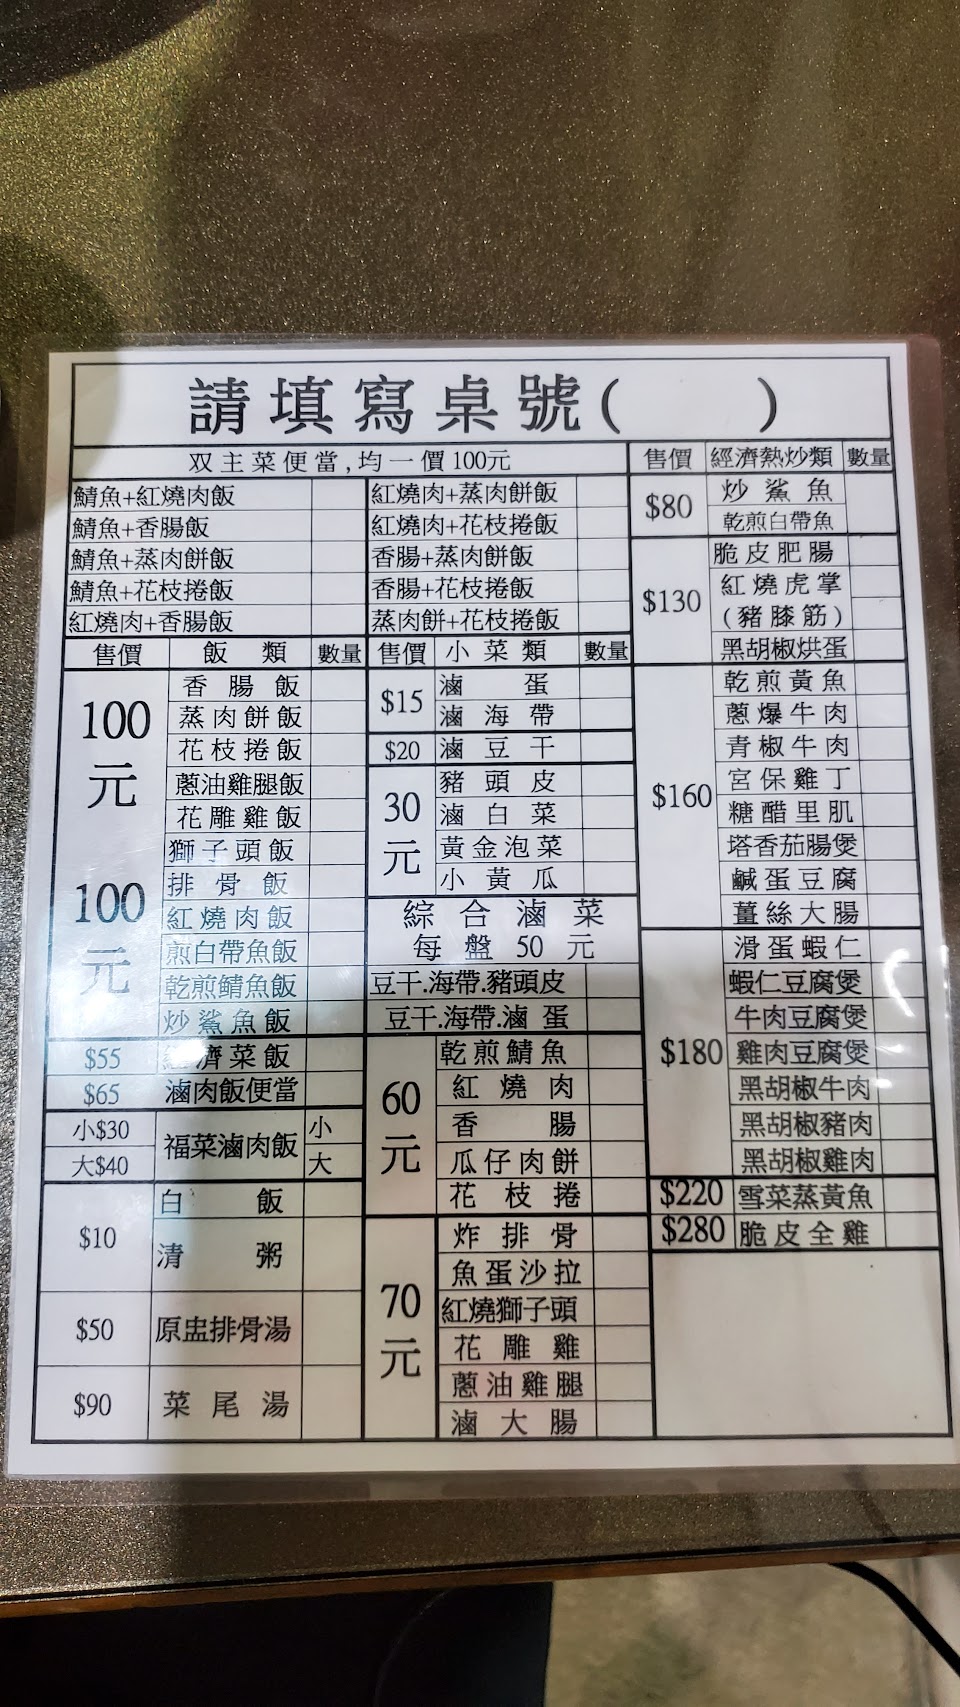 請填寫桌號( )
双主菜便當,均一價100元
鯖魚+紅燒肉飯 紅燒肉+蒸肉餅飯
鯖魚+香腸飯 紅燒肉+花枝捲飯
鯖魚+蒸肉餅飯 香腸+蒸肉餅飯
鯖魚+花枝捲飯 香腸+花枝捲飯
紅燒肉+香腸飯 蒸肉餅+花枝捲飯
售價 飯類 數量
100元
香腸飯
蒸肉餅飯
花枝捲飯
蔥油雞腿飯
花雕雞飯
獅子頭飯
100元
排骨飯
紅燒肉飯
煎白帶魚飯
乾煎鯖魚飯
炒鯊魚飯
$55 經濟菜飯
$65 滷肉飯便當
小$30 福菜滷肉飯 小
大$40 大
$10 白飯
清粥
$50 原盅排骨湯
$90 菜尾湯
售價 小菜類 數量
$15 滷蛋
滷海帶
$20 滷豆干
30元
豬頭皮
滷白菜
黃金泡菜
小黃瓜
綜合滷菜
每盤50元
豆干.海帶.豬頭皮
豆干.海帶.滷蛋
60元
乾煎鯖魚
紅燒肉
香腸
瓜仔肉餅
花枝捲
70元
炸排骨
魚蛋沙拉
紅燒獅子頭
花雕雞
蔥油雞腿
滷大腸
售價 經濟熱炒類 數量
$80 炒鯊魚
乾煎白帶魚
$130 脆皮肥腸
紅燒虎掌
(豬膝筋)
黑胡椒烘蛋
$160 乾煎黃魚
蔥爆牛肉
青椒牛肉
宮保雞丁
糖醋里肌
塔香茄腸煲
鹹蛋豆腐
薑絲大腸
$180 滑蛋蝦仁
蝦仁豆腐煲
牛肉豆腐煲
雞肉豆腐煲
黑胡椒牛肉
黑胡椒豬肉
黑胡椒雞肉
$220 雪菜蒸黃魚
$280 脆皮全雞